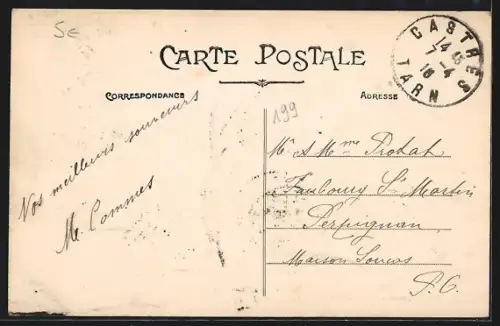 5e
CARTE POSTALE
CASTRES
14 45
7-4
16
TARN
CORRESPONDANCE
ADRESSE
199
Nos meilleurs souvenirs
Me Commes
Mr & Mme Protat
Faubourg St Martin
Perpignan
Maison
P.O.